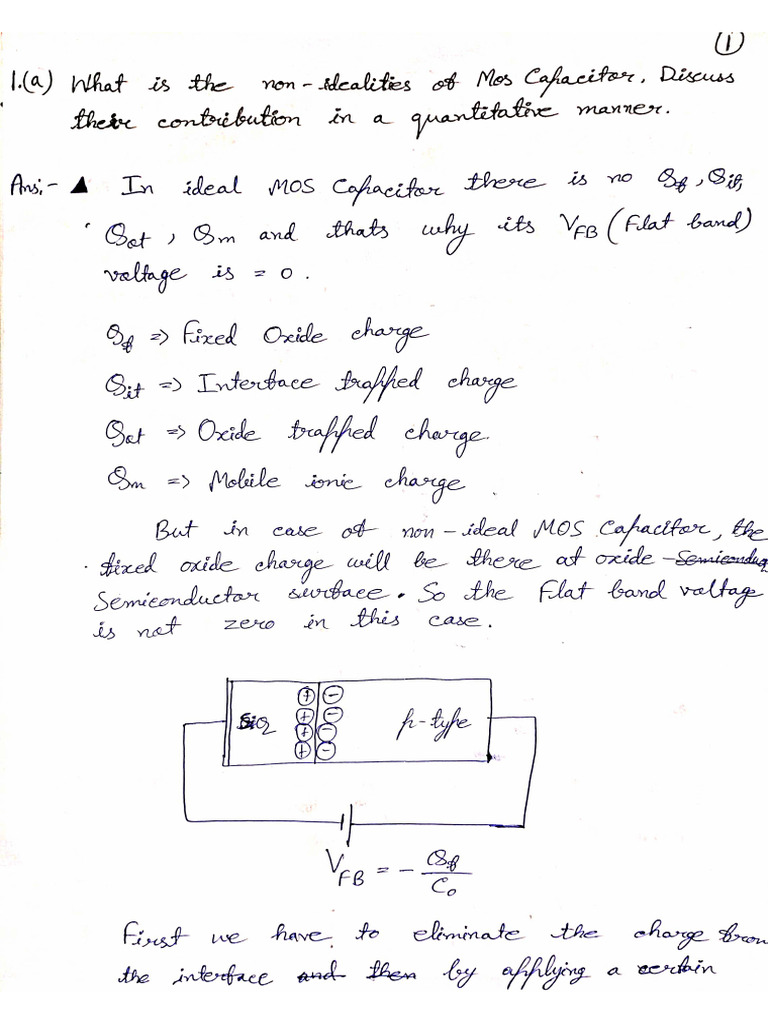 ①
1.(a) What is the non-idealities of Mos Capacitor. Discuss
their contribution in a quantitative manner.
Ans:- ▲ In ideal MOS Capacitor there is no Qf, Qit,
Qot, Qm and thats why its VFB (Flat band)
voltage is = 0.
Qf => Fixed Oxide charge
Qit => Interface trapped charge
Qot => Oxide trapped charge.
Qm => Mobile ionic charge
But in case of non-ideal MOS Capacitor, the
fixed oxide charge will be there at oxide - Semicondu
Semiconductor surface. So the Flat band voltage
is not zero in this case.
SiO2 + - p-type
+ -
+ -
+ -
VFB = - Qf / Co
First we have to eliminate the charge from
the interface and then by applying a certain